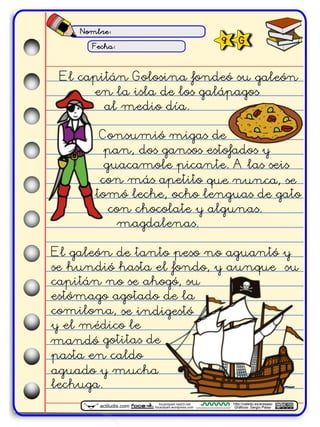 Nombre:
Fecha:
9 G
El capitán Golosina fondeó su galeón
en la isla de los galápagos
al medio día.
Consumió migas de
pan, dos gansos estofados y
guacamole picante. A las seis
con más apetito que nunca, se
tomó leche, ocho lenguas de gato
con chocolate y algunas.
magdalenas.
El galeón de tanto peso no aguantó y
se hundió hasta el fondo, y aunque su
capitán no se ahogó, su
estómago agotado de la
comilona, se indigestó
y el médico le
mandó gotitas de
pasta en caldo
aguado y mucha
lechuga.
actiludis.com